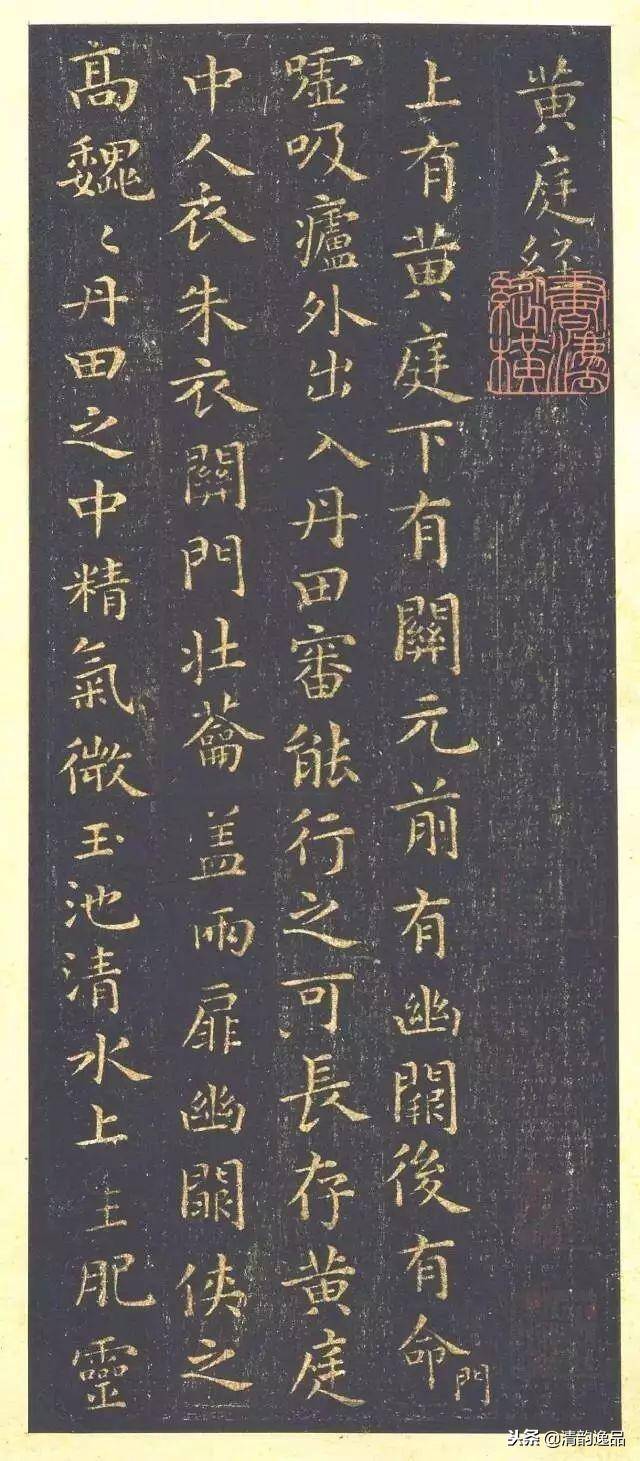 黄庭經
上有黄庭下有關元前有幽闕後有命門
嘘吸廬外出入丹田審能行之可長存黄庭
中人衣朱衣關門壯蘥盖兩扉幽闕侠之
高巍〻丹田之中精氣微玉池清水上生肥靈
头条 @清韵逸品